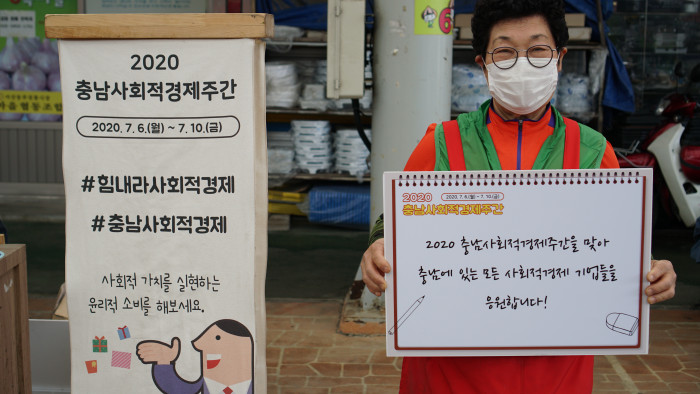 2020
충남사회적경제주간
2020. 7. 6.(월) ~ 7. 10.(금)
#힘내라사회적경제
#충남사회적경제
사회적 가치를 실현하는
윤리적 소비를 해보세요.
2020
2020. 7. 6.(월) ~ 7. 10.(금)
충남사회적경제주간
2020 충남사회적경제주간을 맞아
충남에 있는 모든 사회적경제 기업들을
응원합니다!
6